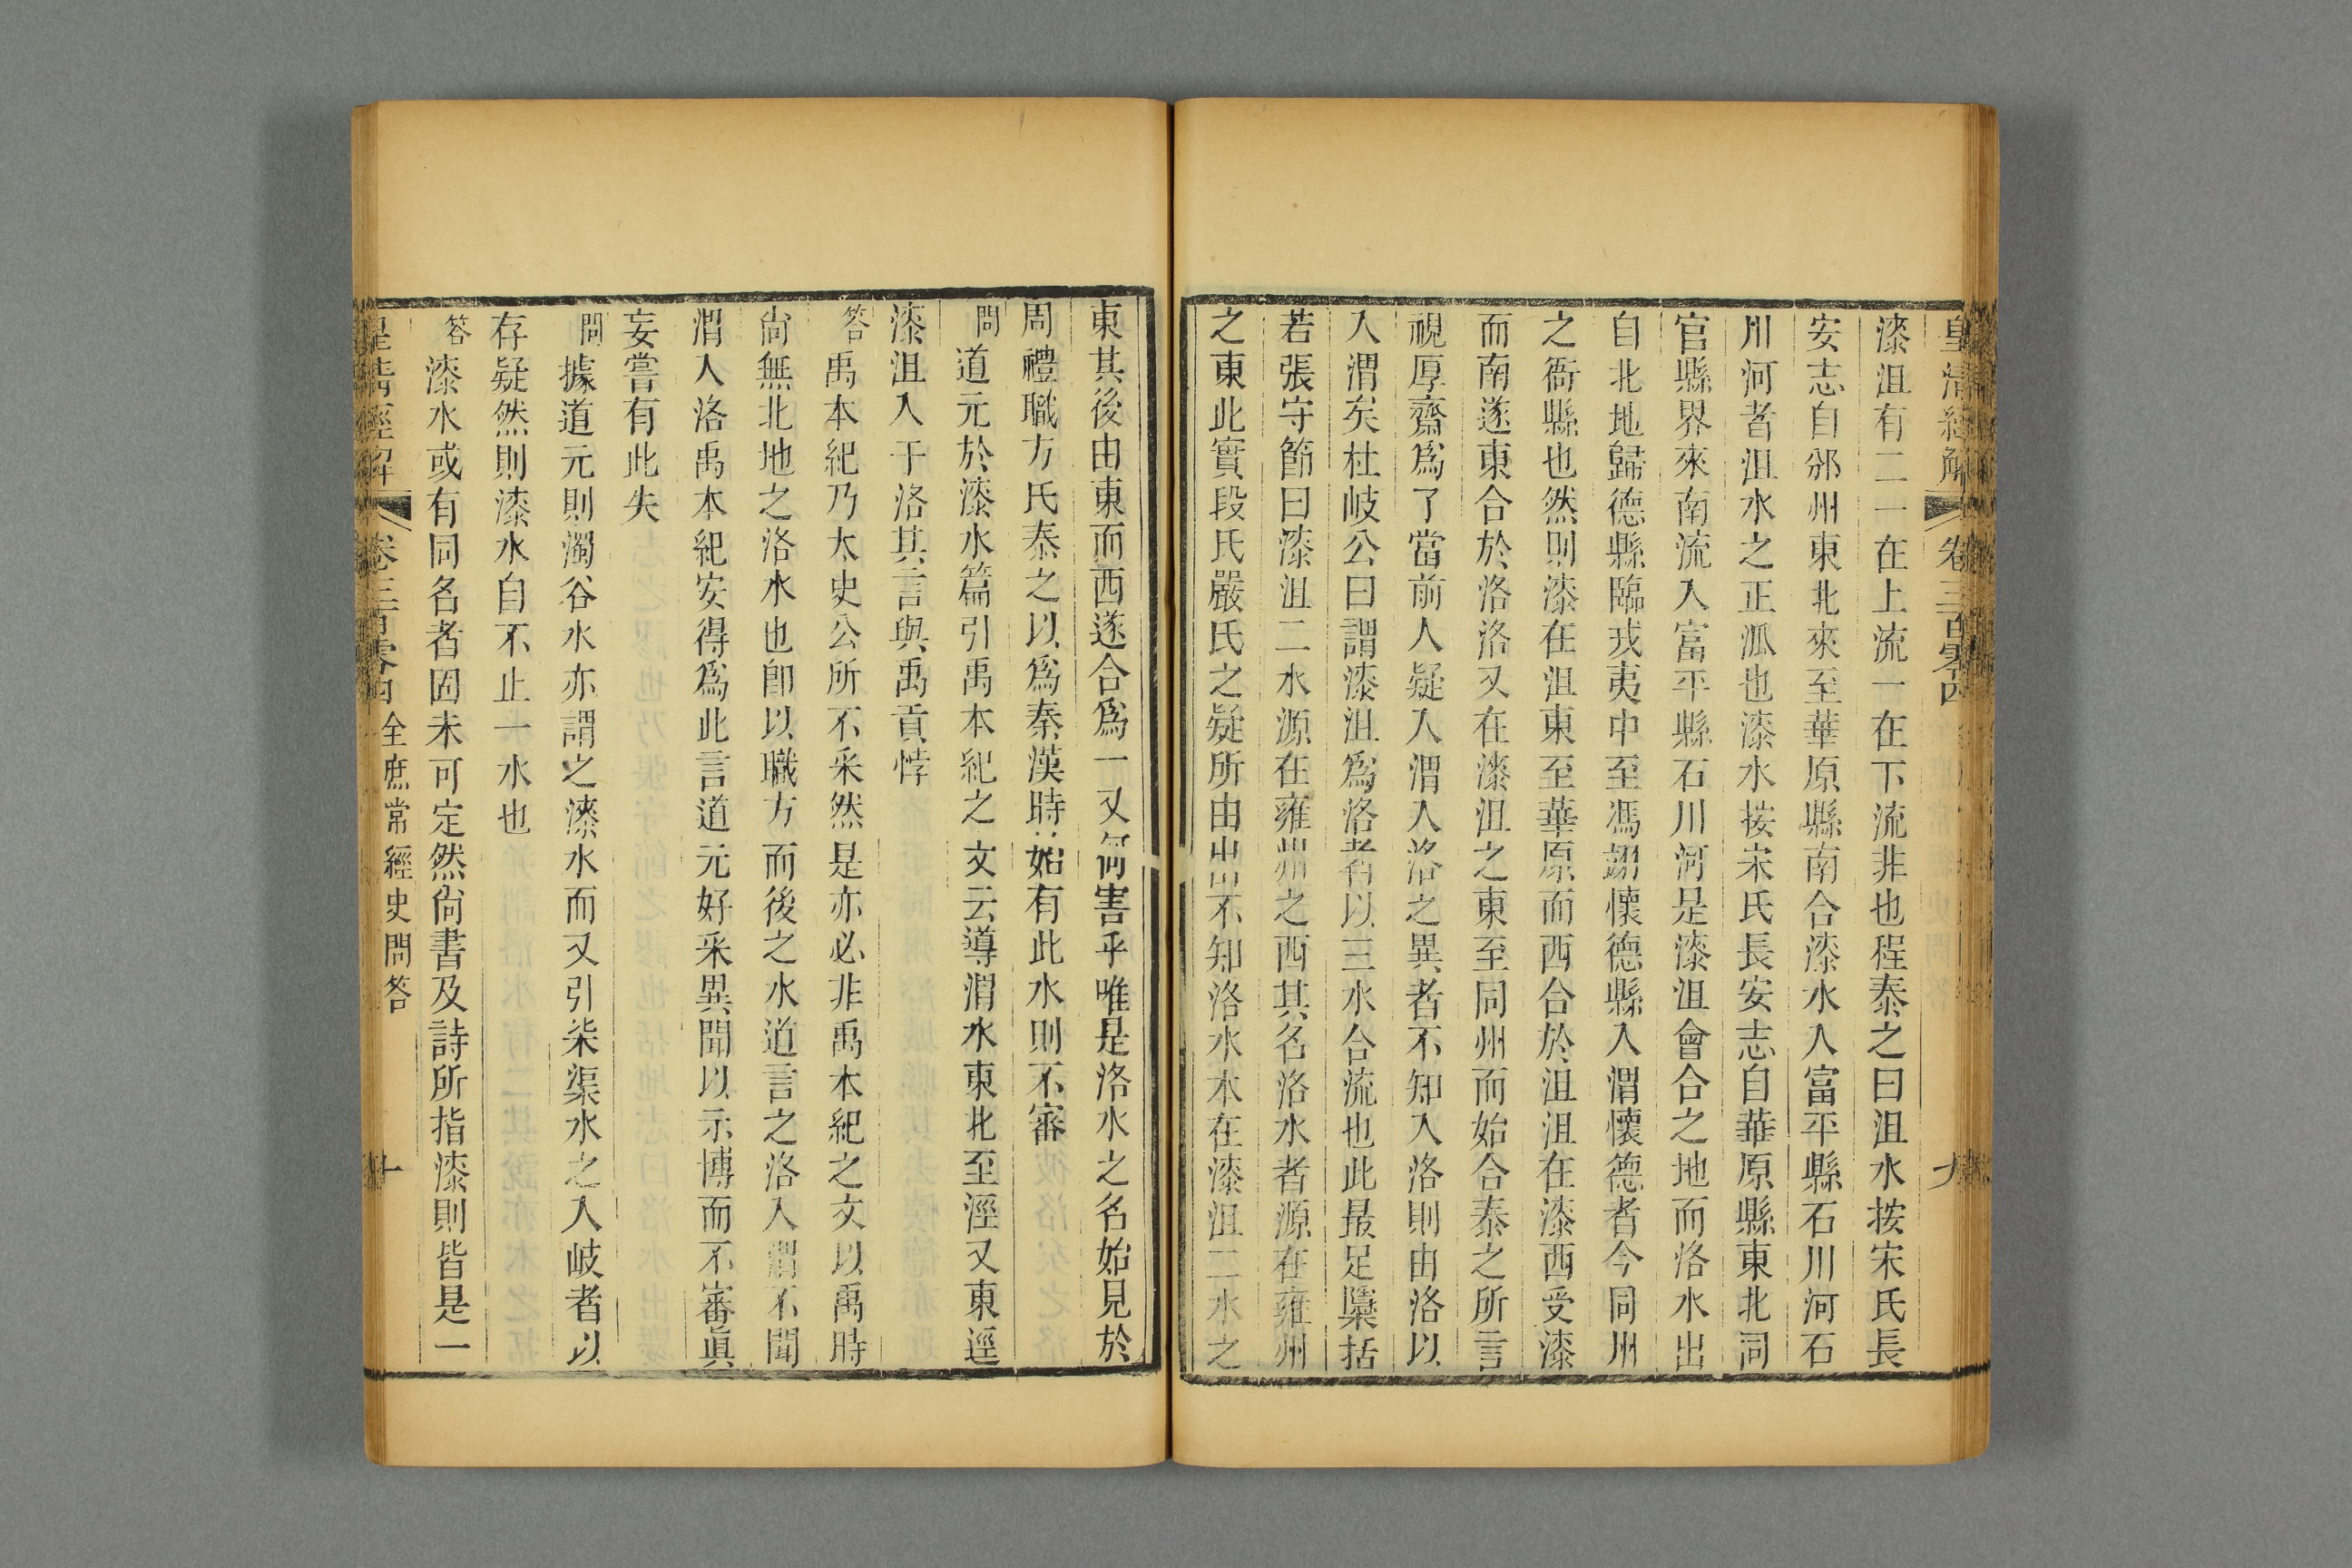 皇清經解 卷三百零四
漆沮有二一在上流一在下流非也程泰之曰沮水按宋氏長
安志自邠州東北來至華原縣南合漆水入富平縣石川河石
川河者沮水之正派也漆水按宋氏長安志自華原縣東北同
官縣界來南流入富平縣石川河是漆沮會合之地而洛水出
自北地歸德縣臨戎夷中至馮翊懷德縣入渭懷德者今同州
之衙縣也然則漆在沮東至華原而西合於沮沮在漆西受漆
而南遂東合於洛洛又在漆沮之東至同州而始合泰之所言
視厚齋為了當前人疑入渭入洛之異者不知入洛則由洛以
入渭矣杜岐公曰謂漆沮為洛者以三水合流也此最足檃括
若張守節曰漆沮二水源在雍州之西其名洛水者源在雍州
之東此實段氏嚴氏之疑所由出不知洛水本在漆沮二水之
東其後由東而西遂合為一又何害乎唯是洛水之名始見於
周禮職方氏泰之以為秦漢時始有此水則不審
問道元於漆水篇引禹本紀之文云導渭水東北至涇又東逕
漆沮入于洛其言與禹貢悖
答禹本紀乃太史公所不采然是亦必非禹本紀之文以禹時
尚無北地之洛水也即以職方而後之水道言之洛入渭不聞
渭入洛禹本紀安得為此言道元好采異聞以示博而不審眞
妄嘗有此失
問據道元則濁谷水亦謂之漆水而又引柒渠水之入岐者以
存疑然則漆水自不止一水也
答漆水或有同名者固未可定然尚書及詩所指漆則皆是一
皇清經解 卷三百零四 全庶常經史問答 十